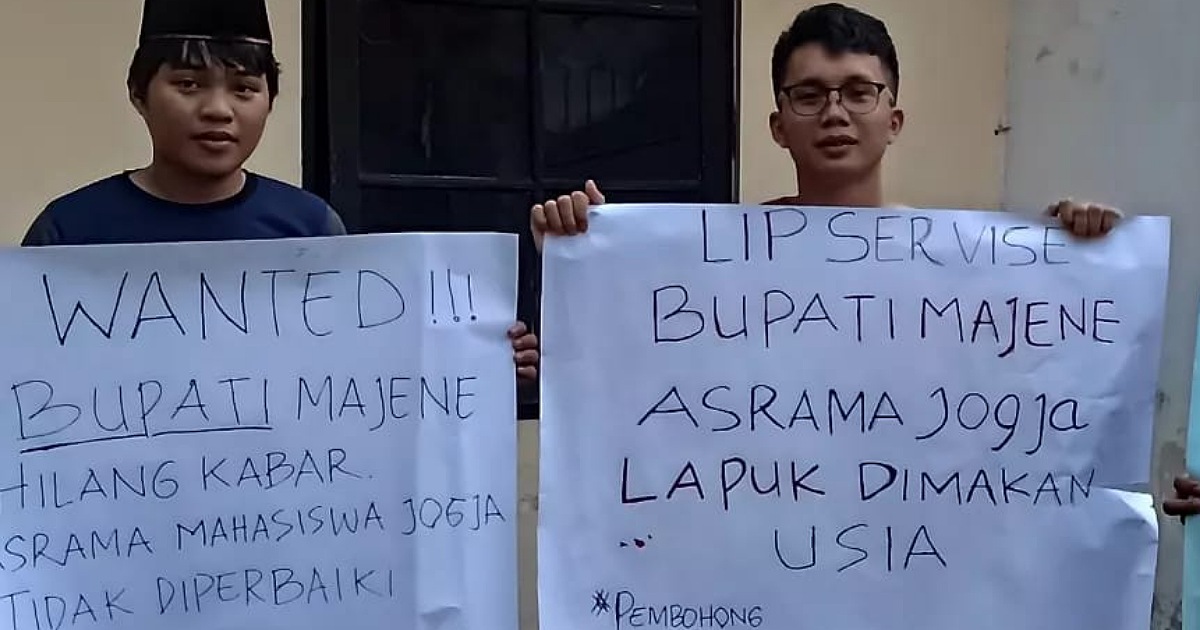 WANTED !!!
BUPATI MAJENE
HILANG KABAR.
ASRAMA MAHASISWA JOGJA
TIDAK DIPERBAIKI
LIP SERVISE
BUPATI MAJENE
ASRAMA Jogja
LAPUK DIMAKAN
... USIA
*PEMBOHONG